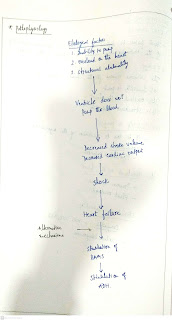 * pathophysiology
Etiological factors
1. Inability to pump
2. overload on the heart
3. structural abnormality
Ventricle does not
pump the blood
Decreased stroke volume,
Decreased cardiac output
Shock
Heart failure
mechanism
stimulation of
RAAS
Stimulation of
ADH